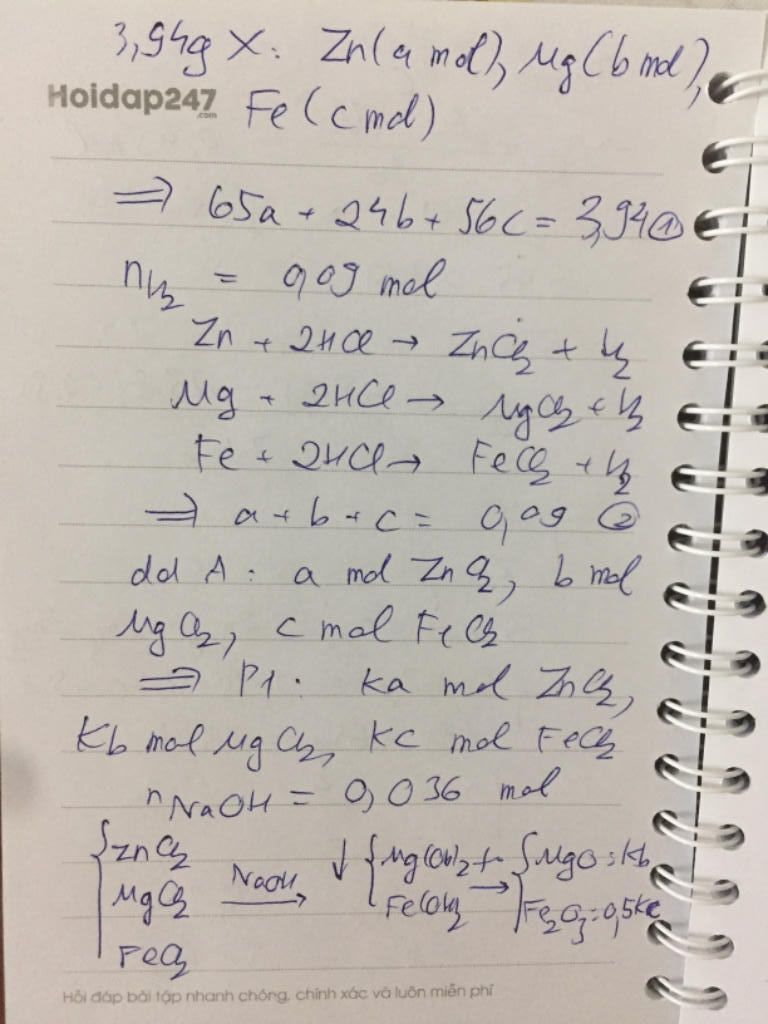 3,94g X: Zn(a mol), Mg(b mol),
Hoidap247
.com
Fe(c mol)
=> 65a + 24b + 56c = 3,94 ①
nH₂ = 0,09 mol
Zn + 2HCl → ZnCl₂ + H₂
Mg + 2HCl → MgCl₂ + H₂
Fe + 2HCl → FeCl₂ + H₂
=> a + b + c = 0,09 ②
dd A: a mol ZnCl₂, b mol
MgCl₂, c mol FeCl₂
=> P1: ka mol ZnCl₂,
kb mol MgCl₂, kc mol FeCl₂
nNaOH = 0,036 mol
{ZnCl₂ MgCl₂ FeCl₂ NaOH → ↓ {Mg(OH)₂ Fe(OH)₂ → {MgO: kb Fe₂O₃: 0,5kc
Hỏi đáp bài tập nhanh chóng, chính xác và luôn miễn phí